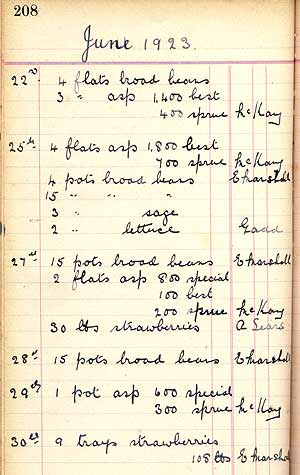 208
June 1923.
22nd 4 flats broad beans
3 " asp 1,400 best
400 sprue McKay
25th 4 flats asp 1,800 best
700 sprue McKay
4 pots broad beans E Marshall
15 " " "
3 " sage
2 " lettuce Gadd
27th 15 pots broad beans E Marshall
2 flats asp 800 special
100 best
200 sprue McKay
30 lbs strawberries A Sears
28th 15 pots broad beans E Marshall
29th 1 pot asp 600 special
300 sprue McKay
30th 9 trays strawberries
108 lbs E Marshall